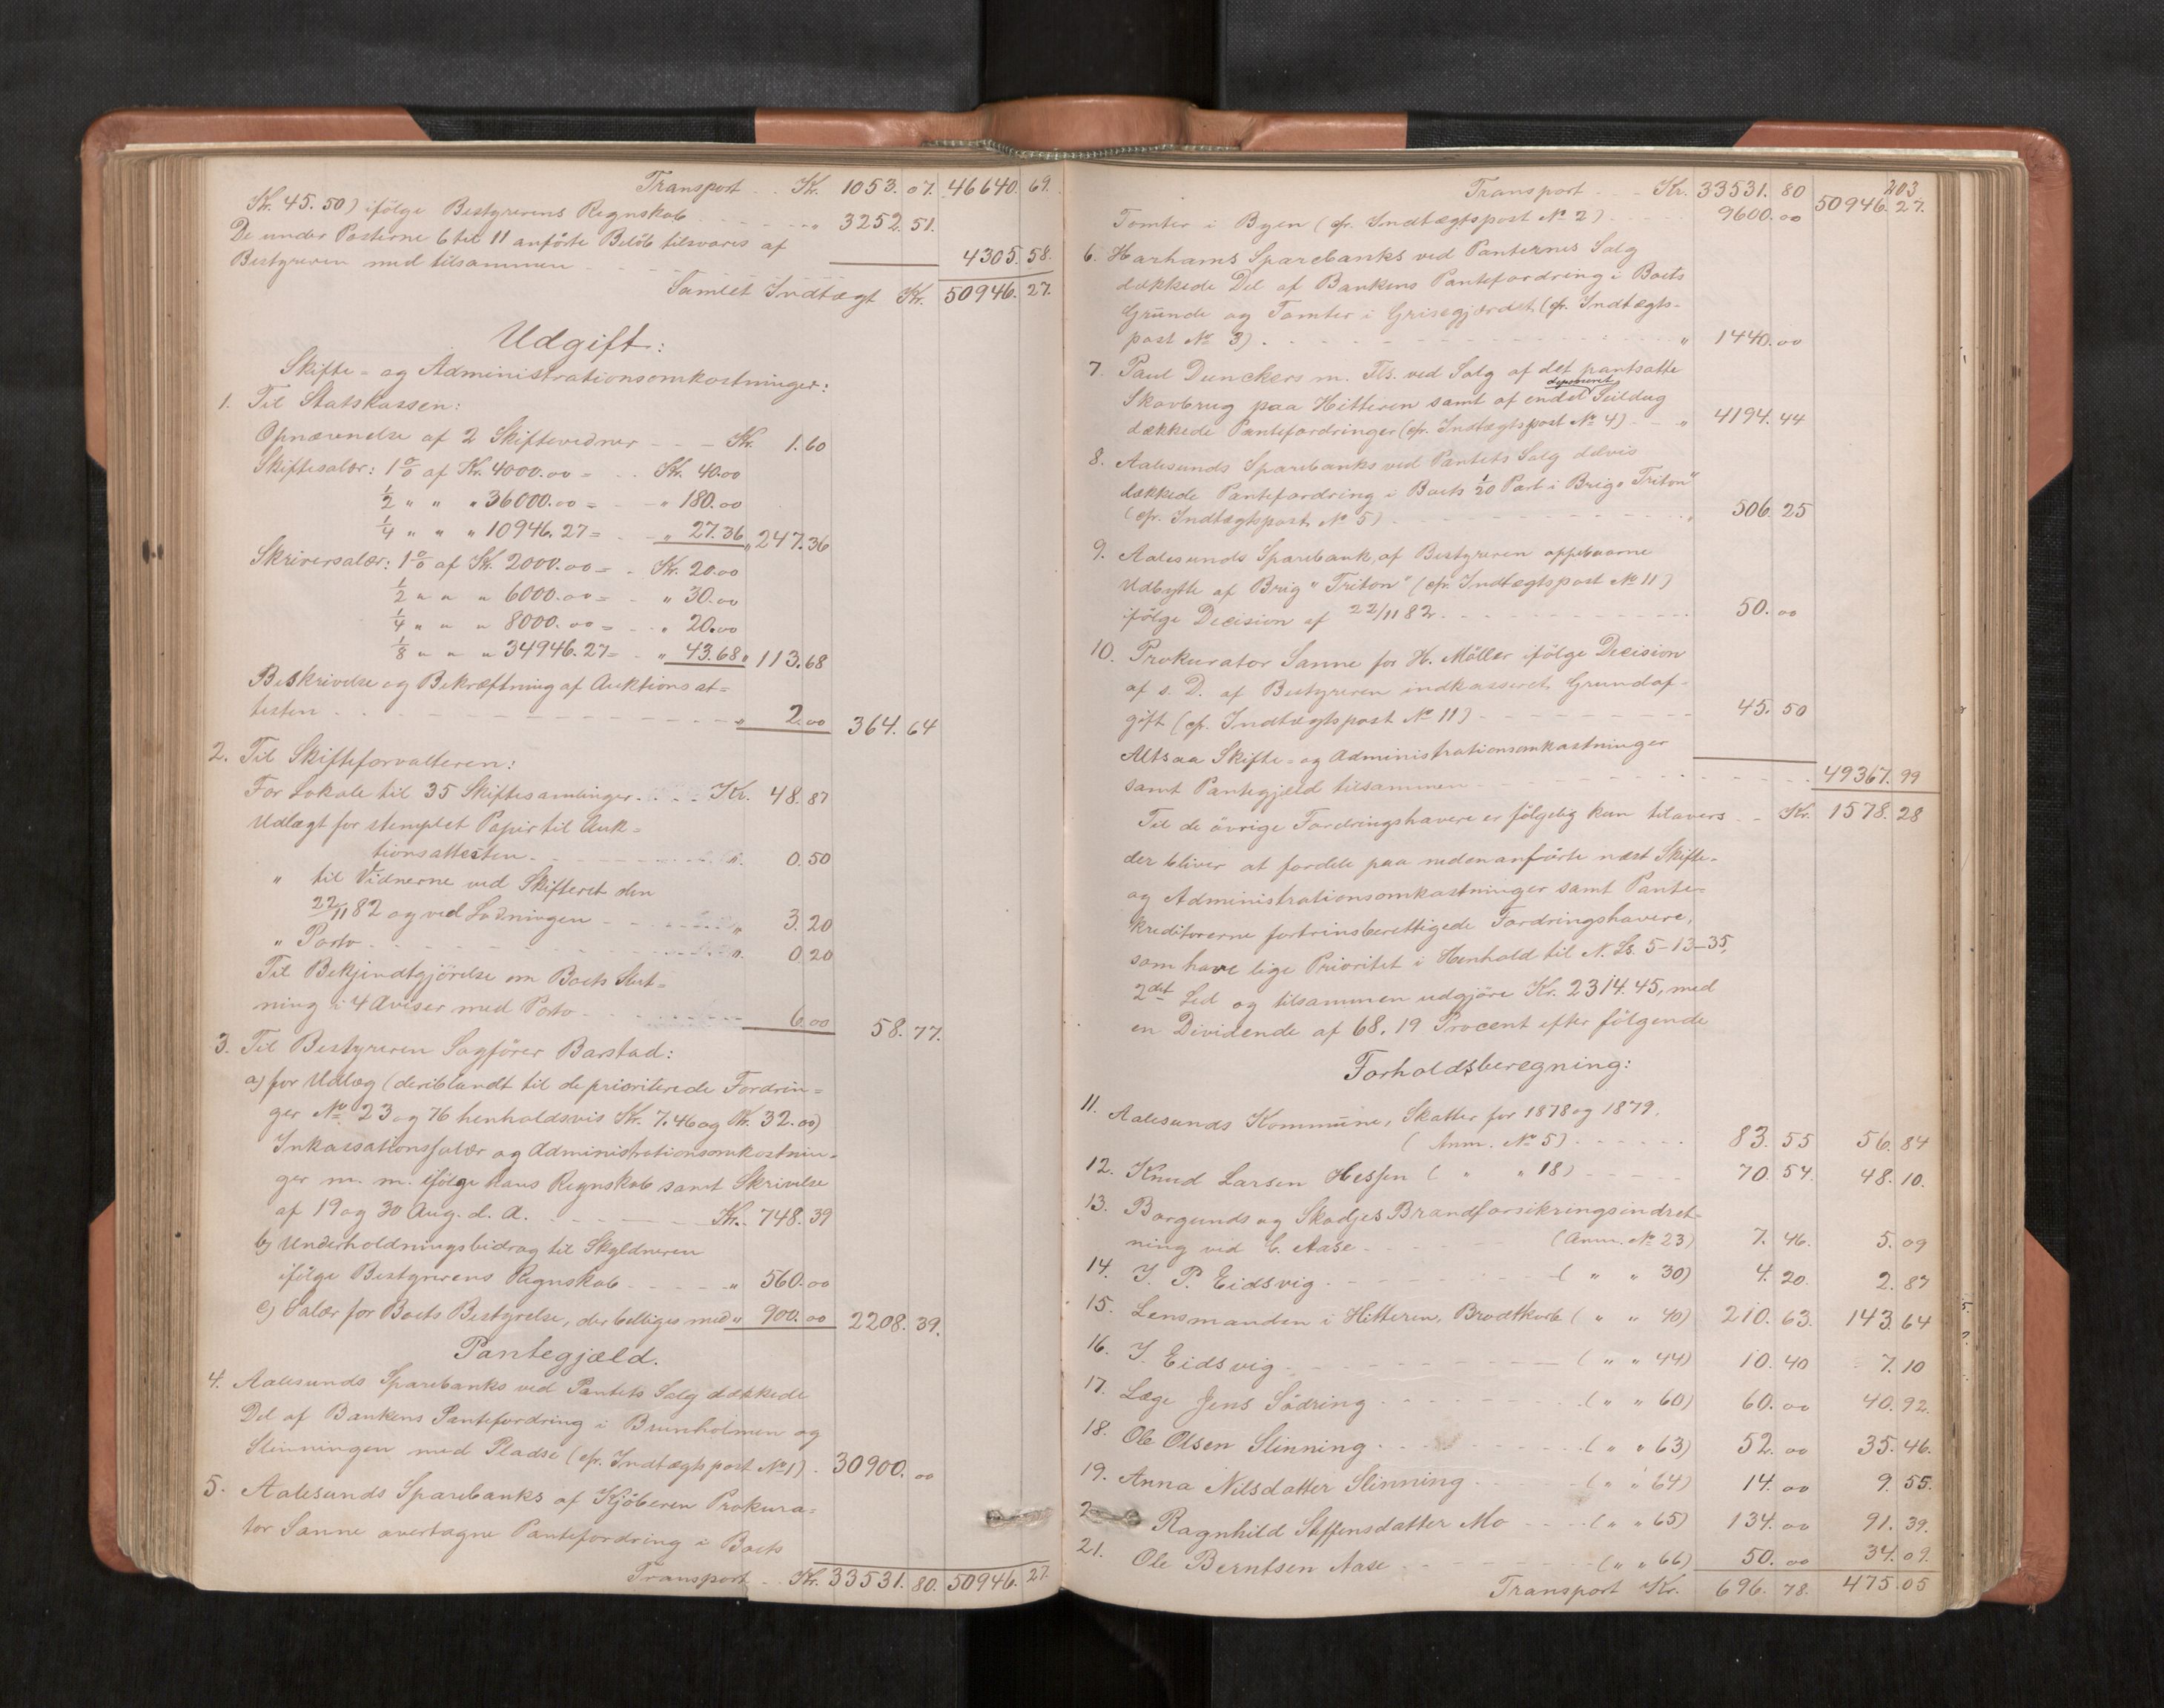 Transport . . Kr. 1053. 07. 46640. 69.
Kr. 45.50) ifölge Bestyrerens Regnskab - - - - „ 3252. 51.
De under Posterne 6 til 11 anförte Belöb tilsvares af
Bestyreren med tilsammen - - - - 4305. 58.
Samlet Indtægt Kr. 50946. 27.
Udgift:
Skifte- og Administrationsomkostninger:
1. Til Statskassen:
Opnævnelse af 2 Skiftevidner - - - Kr. 1.60
Skiftesalær: 1 % af Kr. 4000.00 = . . Kr. 40.00
1/2 „ „ „ 36000.00 = - „ 180.00
1/4 „ „ „ 10946.27 = - „ 27.36 „ 247.36
Skriversalær: 1 % af Kr. 2000.00 = . Kr. 20.00
1/2 „ „ „ 6000.00 = . „ 30.00
1/4 „ „ „ 8000.00 = . „ 20.00
1/8 „ „ „ 34946.27 = . „ 43.68 „ 113.68
Beskrivelse og Bekræftning af Auktionsat=
testen . . - - - - - „ 2.00 364. 64
2. Til Skifteforvalteren:
For Lokale til 35 Skiftesamlinger . . . . Kr. 48.87
Udlagt for stemplet Papir til Auk=
tionsattesten - - - - „ 0.50
„ til Vidnerne ved Skifteret den
22/11 82 og ved Lodningen - - - - „ 3.20
„ Porto - - - - „ 0.20
Til Bekjendtgjörelse om Boets Slut=
ning i 4 Aviser med Porto - - - - 6.00 58. 77.
3. Til Bestyreren Sagförer Barstad:
a) for Udlæg (deriblandt til de prioriterede Fordrin=
ger No 23 og 76 henholdsvis Kr. 7.46 og Kr. 32.00)
Inkassationssalær og Administrationsomkostnin=
ger m. m. ifölge hans Regnskab samt Skrivelse
af 19 og 30 Aug. d. A. - - - - Kr. 748.39
b) Underholdningsbidrag til Skyldneren
ifölge Bestyrerens Regnskab - - - - „ 560.00
c) Salær for Boets Bestyrelse, der billiges med „ 900.00 2208. 39.
Pantegjæld.
4. Aalesunds Sparebanks ved Pantets Salg dækkede
Del af Bankens Pantefordring i Brunholmen og
Slinningen med Pladse (cfr. Indtægtspost No 1) . 30900. 00
5. Aalesunds Sparebanks af Kjöberen Prokura=
tor Sanne overtagne Pantefordring i Boets
Transport . . Kr. 33531. 80. 50946. 27.
203
Transport . . . Kr. 33531. 80 50946. 27.
Tomter i Byen (cfr. Indtægtspost No 2) - - - - 9600. 00
6. Harhams Sparebanks ved Panternes Salg
dækkede Del af Bankens Pantefordring i Boets
Grunde og Tomter i Grisegjærdet (cfr. Indtægts-
post No 3) . - - - - „ 1440. 00
7. Paul Dunckers m. Fl's. ved Salg af det pantsatte
Skovbrug paa Hitteren samt af endel deponeret Seildug
dækkede Pantefordringer (cfr. Indtægtspost No 4) - - „ 4194. 44
8. Aalesunds Sparebanks ved Pantets Salg delvis
dækkede Pantefordring i Boets 1/20 Part i Brig „Triton"
(cfr. Indtægtspost No 5) - - - - „ 506. 25
9. Aalesunds Sparebank, af Bestyreren oppebaarne
Udbytte af Brig „Triton" (cfr. Indtægtspost No 11)
ifölge Decision af 22/11 82 - - - - 50. 00
10. Prokurator Sanne for H. Möller ifölge Decision
af s. D. af Bestyreren indkasseret Grundaf-
gift (cfr. Indtægtspost No 11) - - - - 45. 50
Altsaa Skifte- og Administrationsomkostninger
samt Pantegjæld tilsammen - - - - 49367. 99
Til de övrige Fordringshavere er fölgelig kun tilovers - . Kr. 1578. 28
der bliver at fordele paa nedenanförte næst Skifte-
og Administrationsomkostninger samt Pante=
kreditorerne fortrinsberettigede Fordringshavere,
som have lige Prioritet i Henhold til N. Ls. 5-13-35,
2det Led og tilsammen udgjöre Kr. 2314.45, med
en Dividende af 68,19 Procent efter fölgende
Forholdsberegning:
11. Aalesunds Kommune, Skatter for 1878 og 1879.
(Anm. No 5) - - - - 83. 55 56. 84
12. Knud Larsen Hessen ( „ „ 18) - - - - 70. 54. 48. 10.
13. Borgunds og Skodjes Brandforsikringsindret-
ning ved E. Aase - - - - (Anm. No 23) 7. 46. 5. 09
14. J. P. Eidsvig - - - - ( „ „ 30) 4. 20. 2. 87
15. Lensmanden i Hitteren, Brodtkorb ( „ „ 40) 210. 63. 143. 64
16. J. Eidsvig - - - - ( „ „ 44) 10. 40 7. 10
17. Læge Jens Södring - - - - ( „ „ 60) 60. 00 40. 92.
18. Ole Olsen Slinning - - - - ( „ „ 63) 52. 00 35. 46.
19. Anna Nilsdatter Slinning - - - - ( „ „ 64) 14. 00 9. 55.
2 Ragnhild Steffensdatter Mo - - - - ( „ „ 65) 134. 00 91. 39.
21. Ole Berntsen Aase - - - - ( „ „ 66) 50. 00 34. 09.
Transport Kr. 696. 78. 475. 05